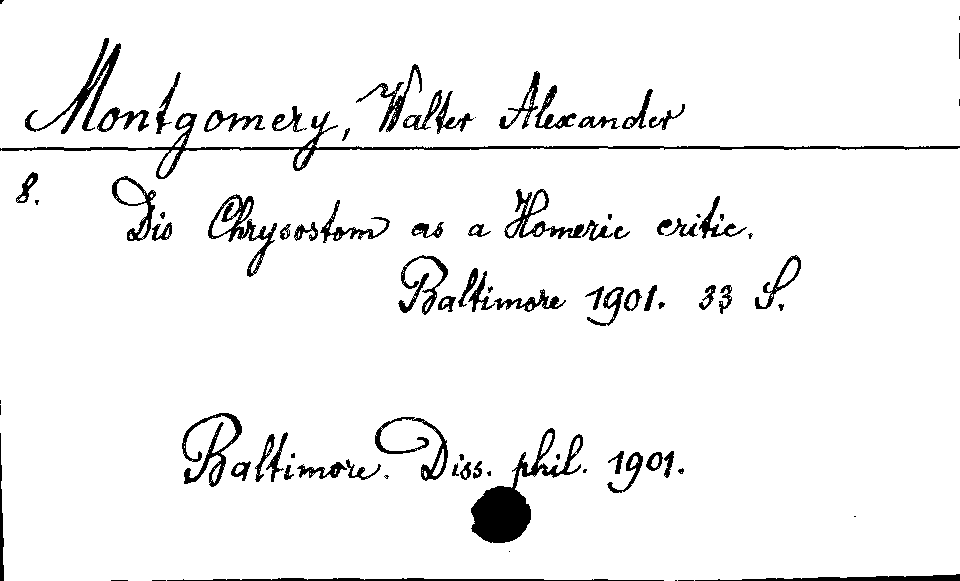 Montgomery, Walter Alexander
8.
Dio Chrysostom as a Homeric critic.
Baltimore 1901. 33 S.
Baltimore. Diss. phil. 1901.